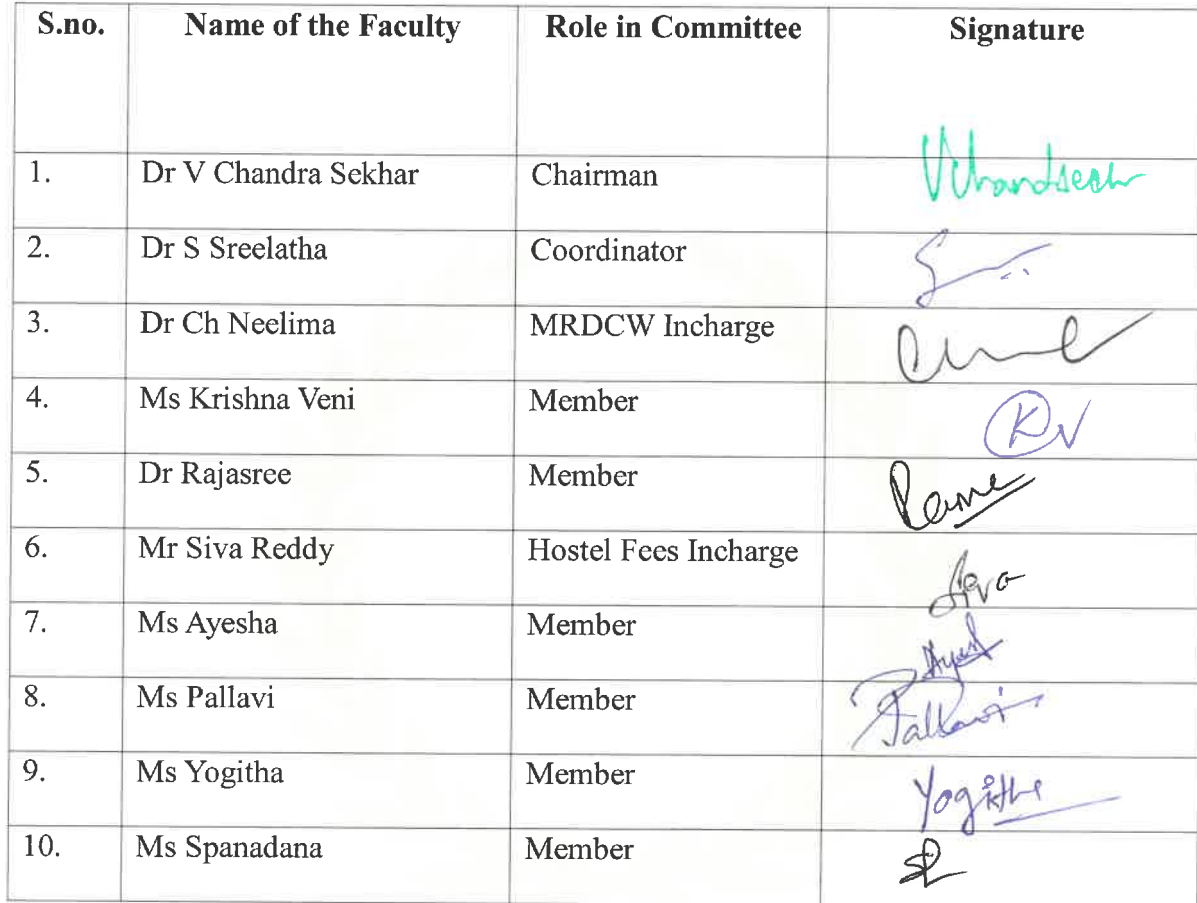 S.no. Name of the Faculty Role in Committee Signature
1. Dr V Chandra Sekhar Chairman
2. Dr S Sreelatha Coordinator
3. Dr Ch Neelima MRDCW Incharge
4. Ms Krishna Veni Member KV
5. Dr Rajasree Member
6. Mr Siva Reddy Hostel Fees Incharge Siva
7. Ms Ayesha Member
8. Ms Pallavi Member Pallavi
9. Ms Yogitha Member Yogitha
10. Ms Spanadana Member